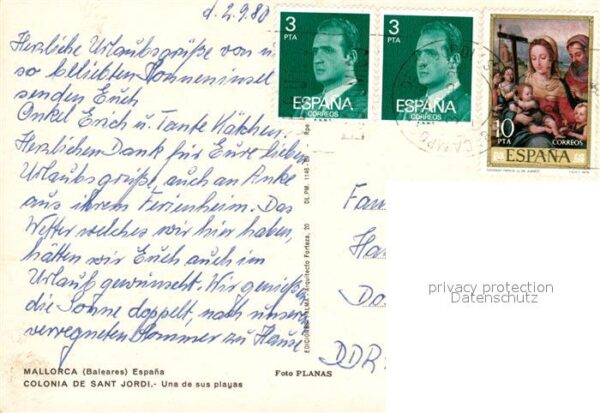 d. 2.9.80
Herzliche Urlaubsgrüße von u.
so beliebten Sonneninsel
senden Euch
Onkel Erich u. Tante Kätchen.
Herzlichen Dank für Eure liebe
Urlaubsgrüße, auch an Anke
aus ihrem Ferienheim. Das
Wetter welches wir hier haben,
hätten wir Euch auch im
Urlaub gewünscht. Wir genießen
die Sonne doppelt, nach unserem
verregneten Sommer zu Hause
MALLORCA (Baleares) España
COLONIA DE SANT JORDI.- Una de sus playas
Foto PLANAS
EDICIONES PALMA - Arquitecto Forteza, 20
DL. PM. 1146
3
PTA
ESPAÑA
CORREOS
3
PTA
ESPAÑA
CORREOS
10
PTA
CORREOS
ESPAÑA
Fam
Ha
Do
DDR
privacy protection
Datenschutz